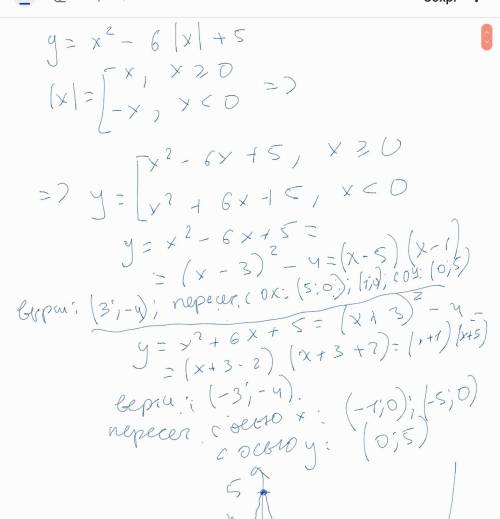 y = x² - 6 |x| + 5
|x| = [ x, x ≥ 0
-x, x < 0 =>
=> y = [ x² - 6x + 5, x ≥ 0
x² + 6x + 5, x < 0
y = x² - 6x + 5 =
= (x - 3)² - 4 = (x - 5) (x - 1)
верш: (3; -4); пересеч. с ох: (5; 0); (1; 0); с оу: (0; 5)
y = x² + 6x + 5 = (x + 3)² - 4 =
= (x + 3 - 2) (x + 3 + 2) = (x + 1) (x + 5)
верш: (-3; -4).
пересеч с осью x: (-1; 0); (-5; 0)
с осью y: (0; 5)
5